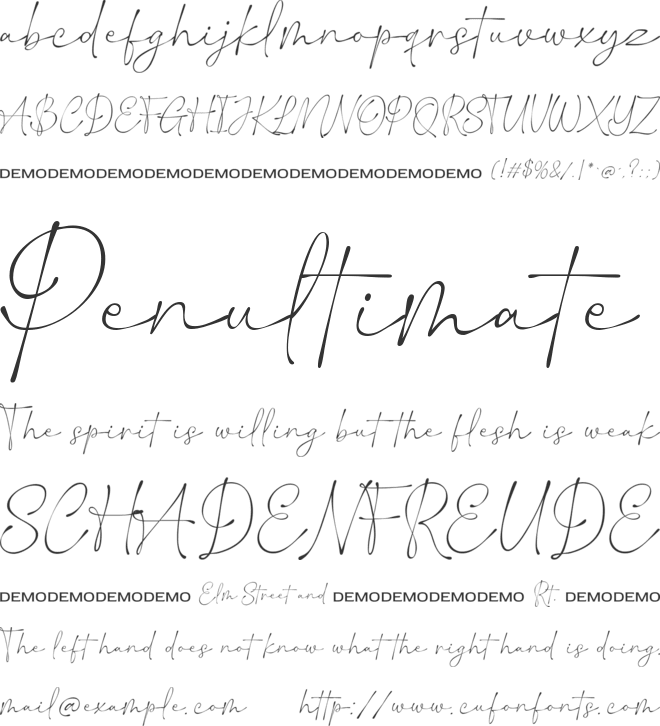 abcdefghijklmnopqrstuvwxyz
ABCDEFGHIJKLMNOPQRSTUVWXYZ
DEMODEMODEMODEMODEMODEMODEMODEMODEMODEMO (!#$%&/.|*·@·,?:;)
Penultimate
The spirit is willing but the flesh is weak
SCHADENFREUDE
DEMODEMODEMODEMO Elm Street and DEMODEMODEMODEMO Rt. DEMODEMO
The left hand does not know what the right hand is doing.
mail@example.com http://www.cufonfonts.com